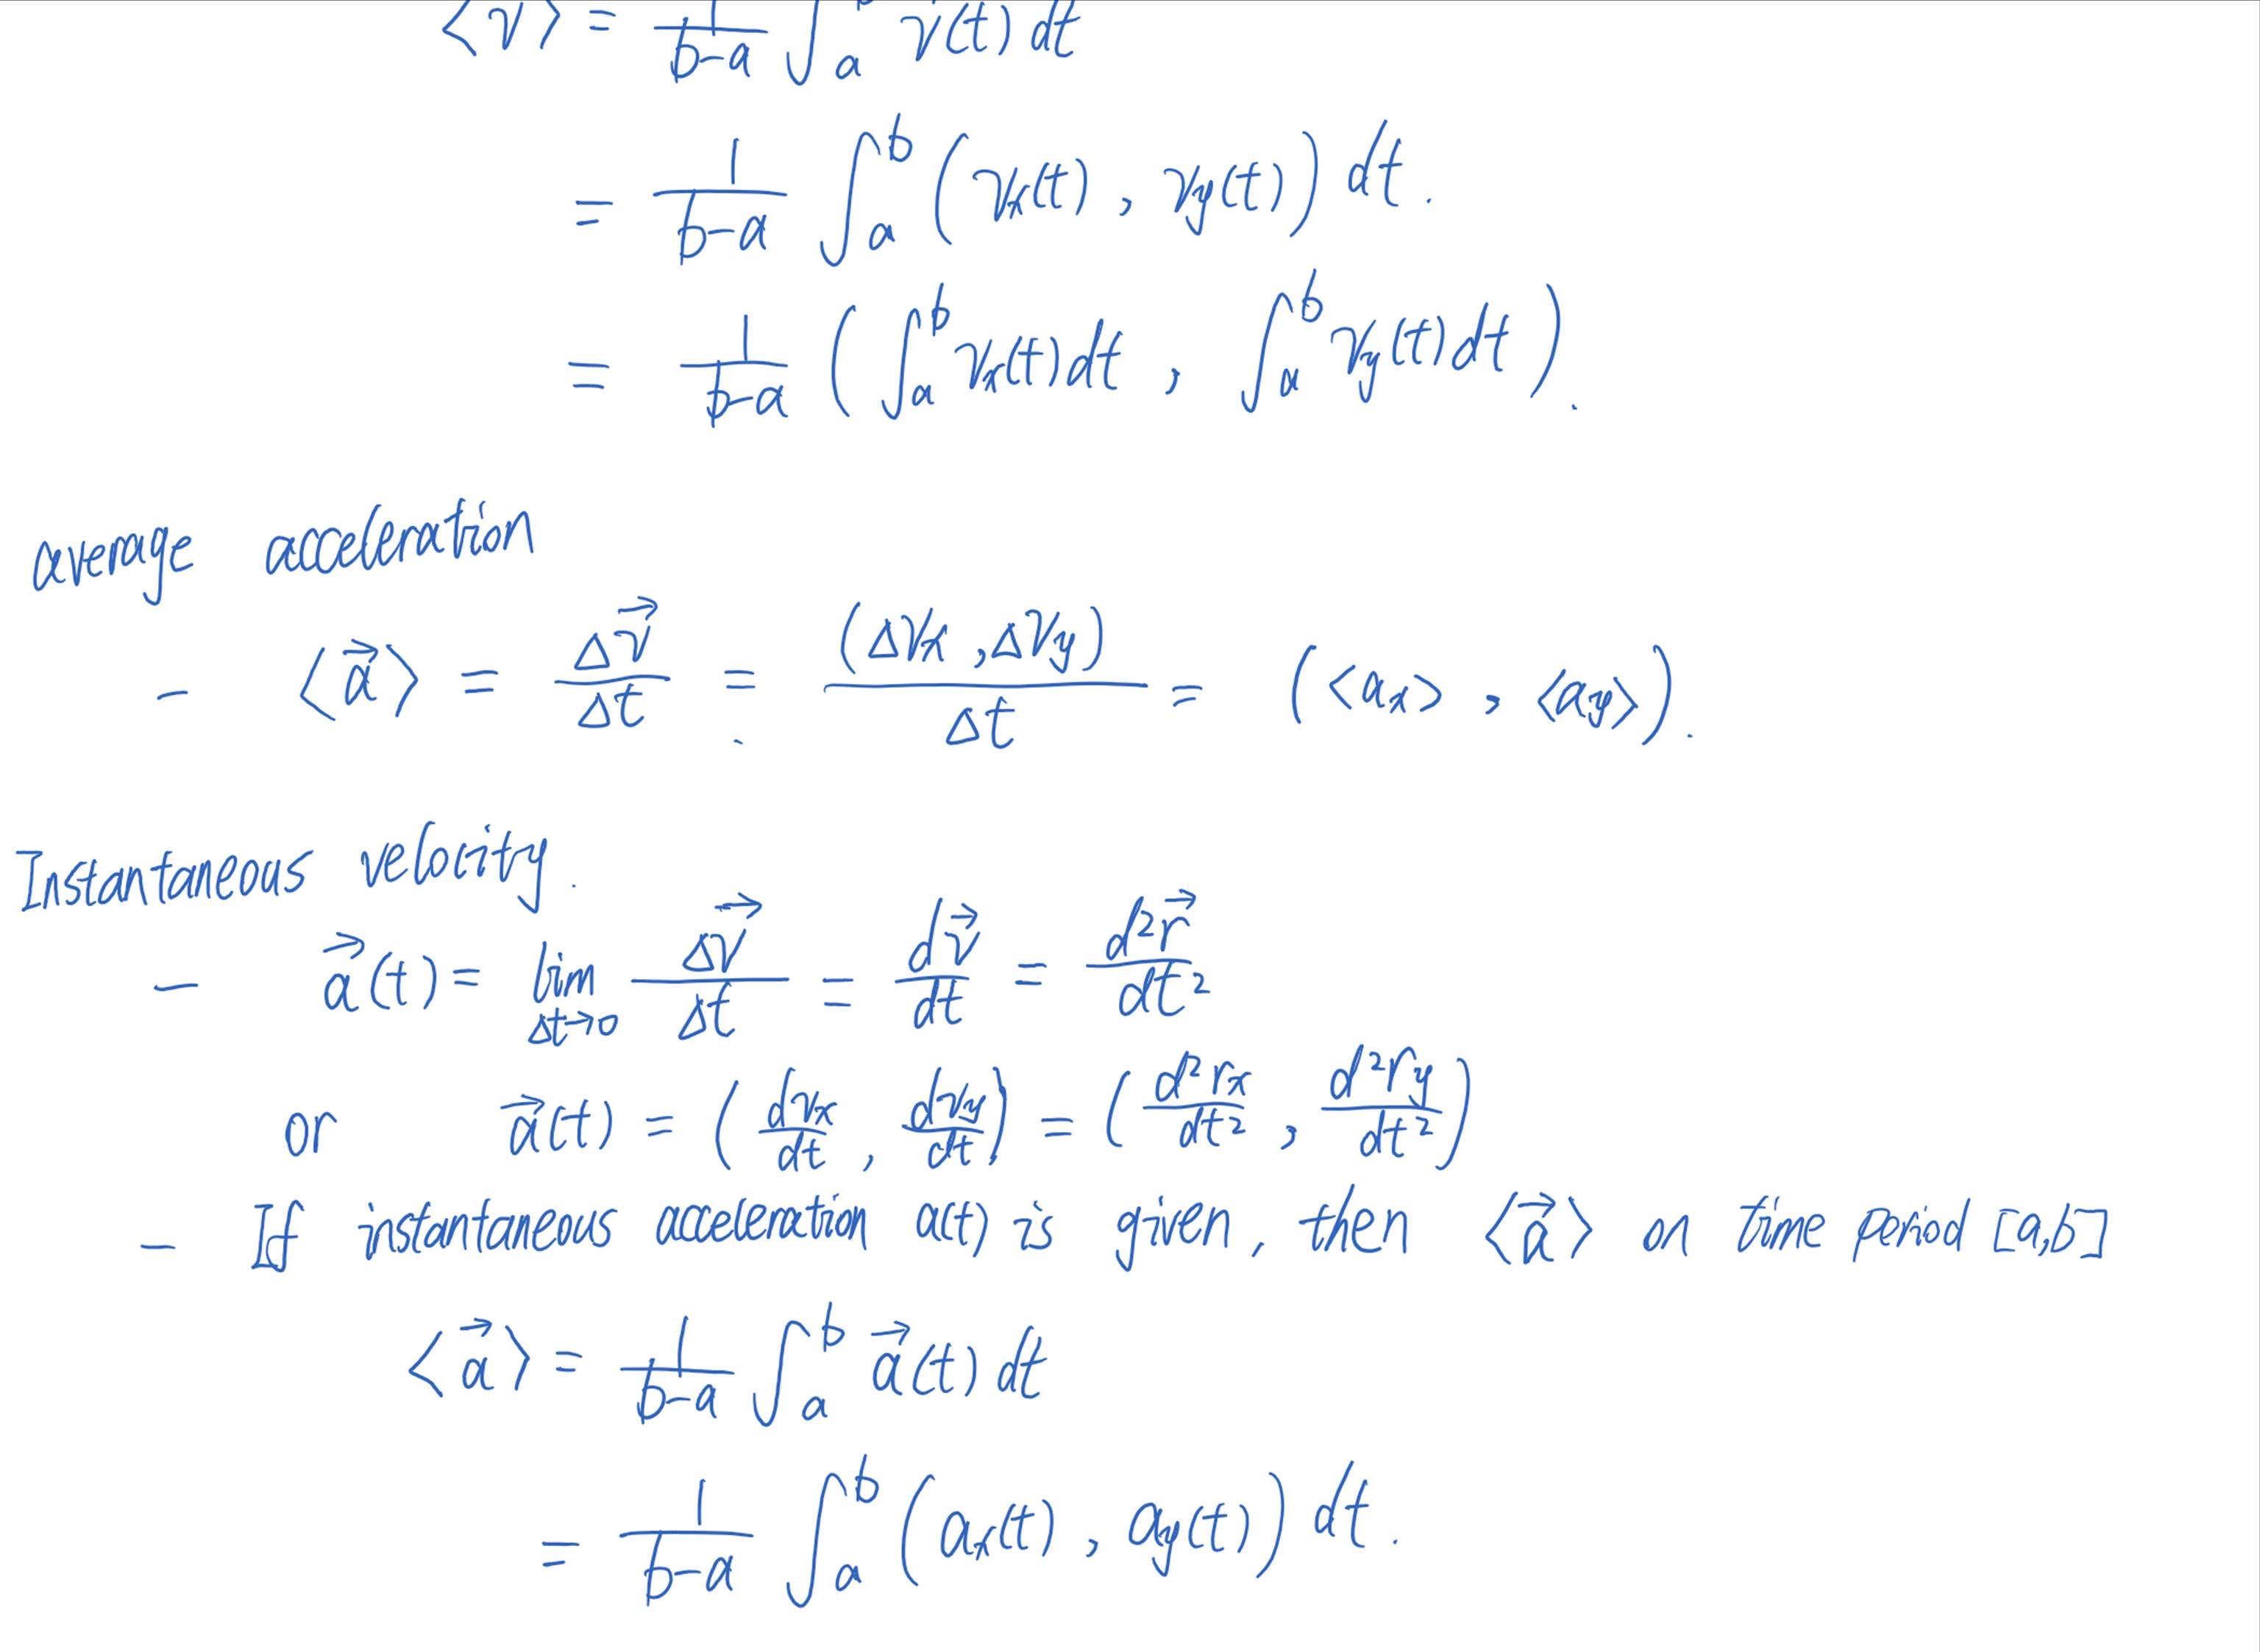 ⟨v⟩ = 1/(b-a) ∫_a^b v(t) dt
= 1/(b-a) ∫_a^b (v_x(t), v_y(t)) dt.
= 1/(b-a) (∫_a^b v_x(t) dt, ∫_a^b v_y(t) dt).
average acceleration
- ⟨a⃗⟩ = Δv⃗/Δt = (Δv_x, Δv_y)/Δt = (⟨a_x⟩, ⟨a_y⟩).
Instantaneous velocity.
- a⃗(t) = lim_{Δt→0} Δv⃗/Δt = dv⃗/dt = d²r⃗/dt²
or a⃗(t) = (dv_x/dt, dv_y/dt) = (d²r_x/dt², d²r_y/dt²)
- If instantaneous acceleration a(t) is given, then ⟨a⃗⟩ on time period [a,b]
⟨a⃗⟩ = 1/(b-a) ∫_a^b a⃗(t) dt
= 1/(b-a) ∫_a^b (a_x(t), a_y(t)) dt.